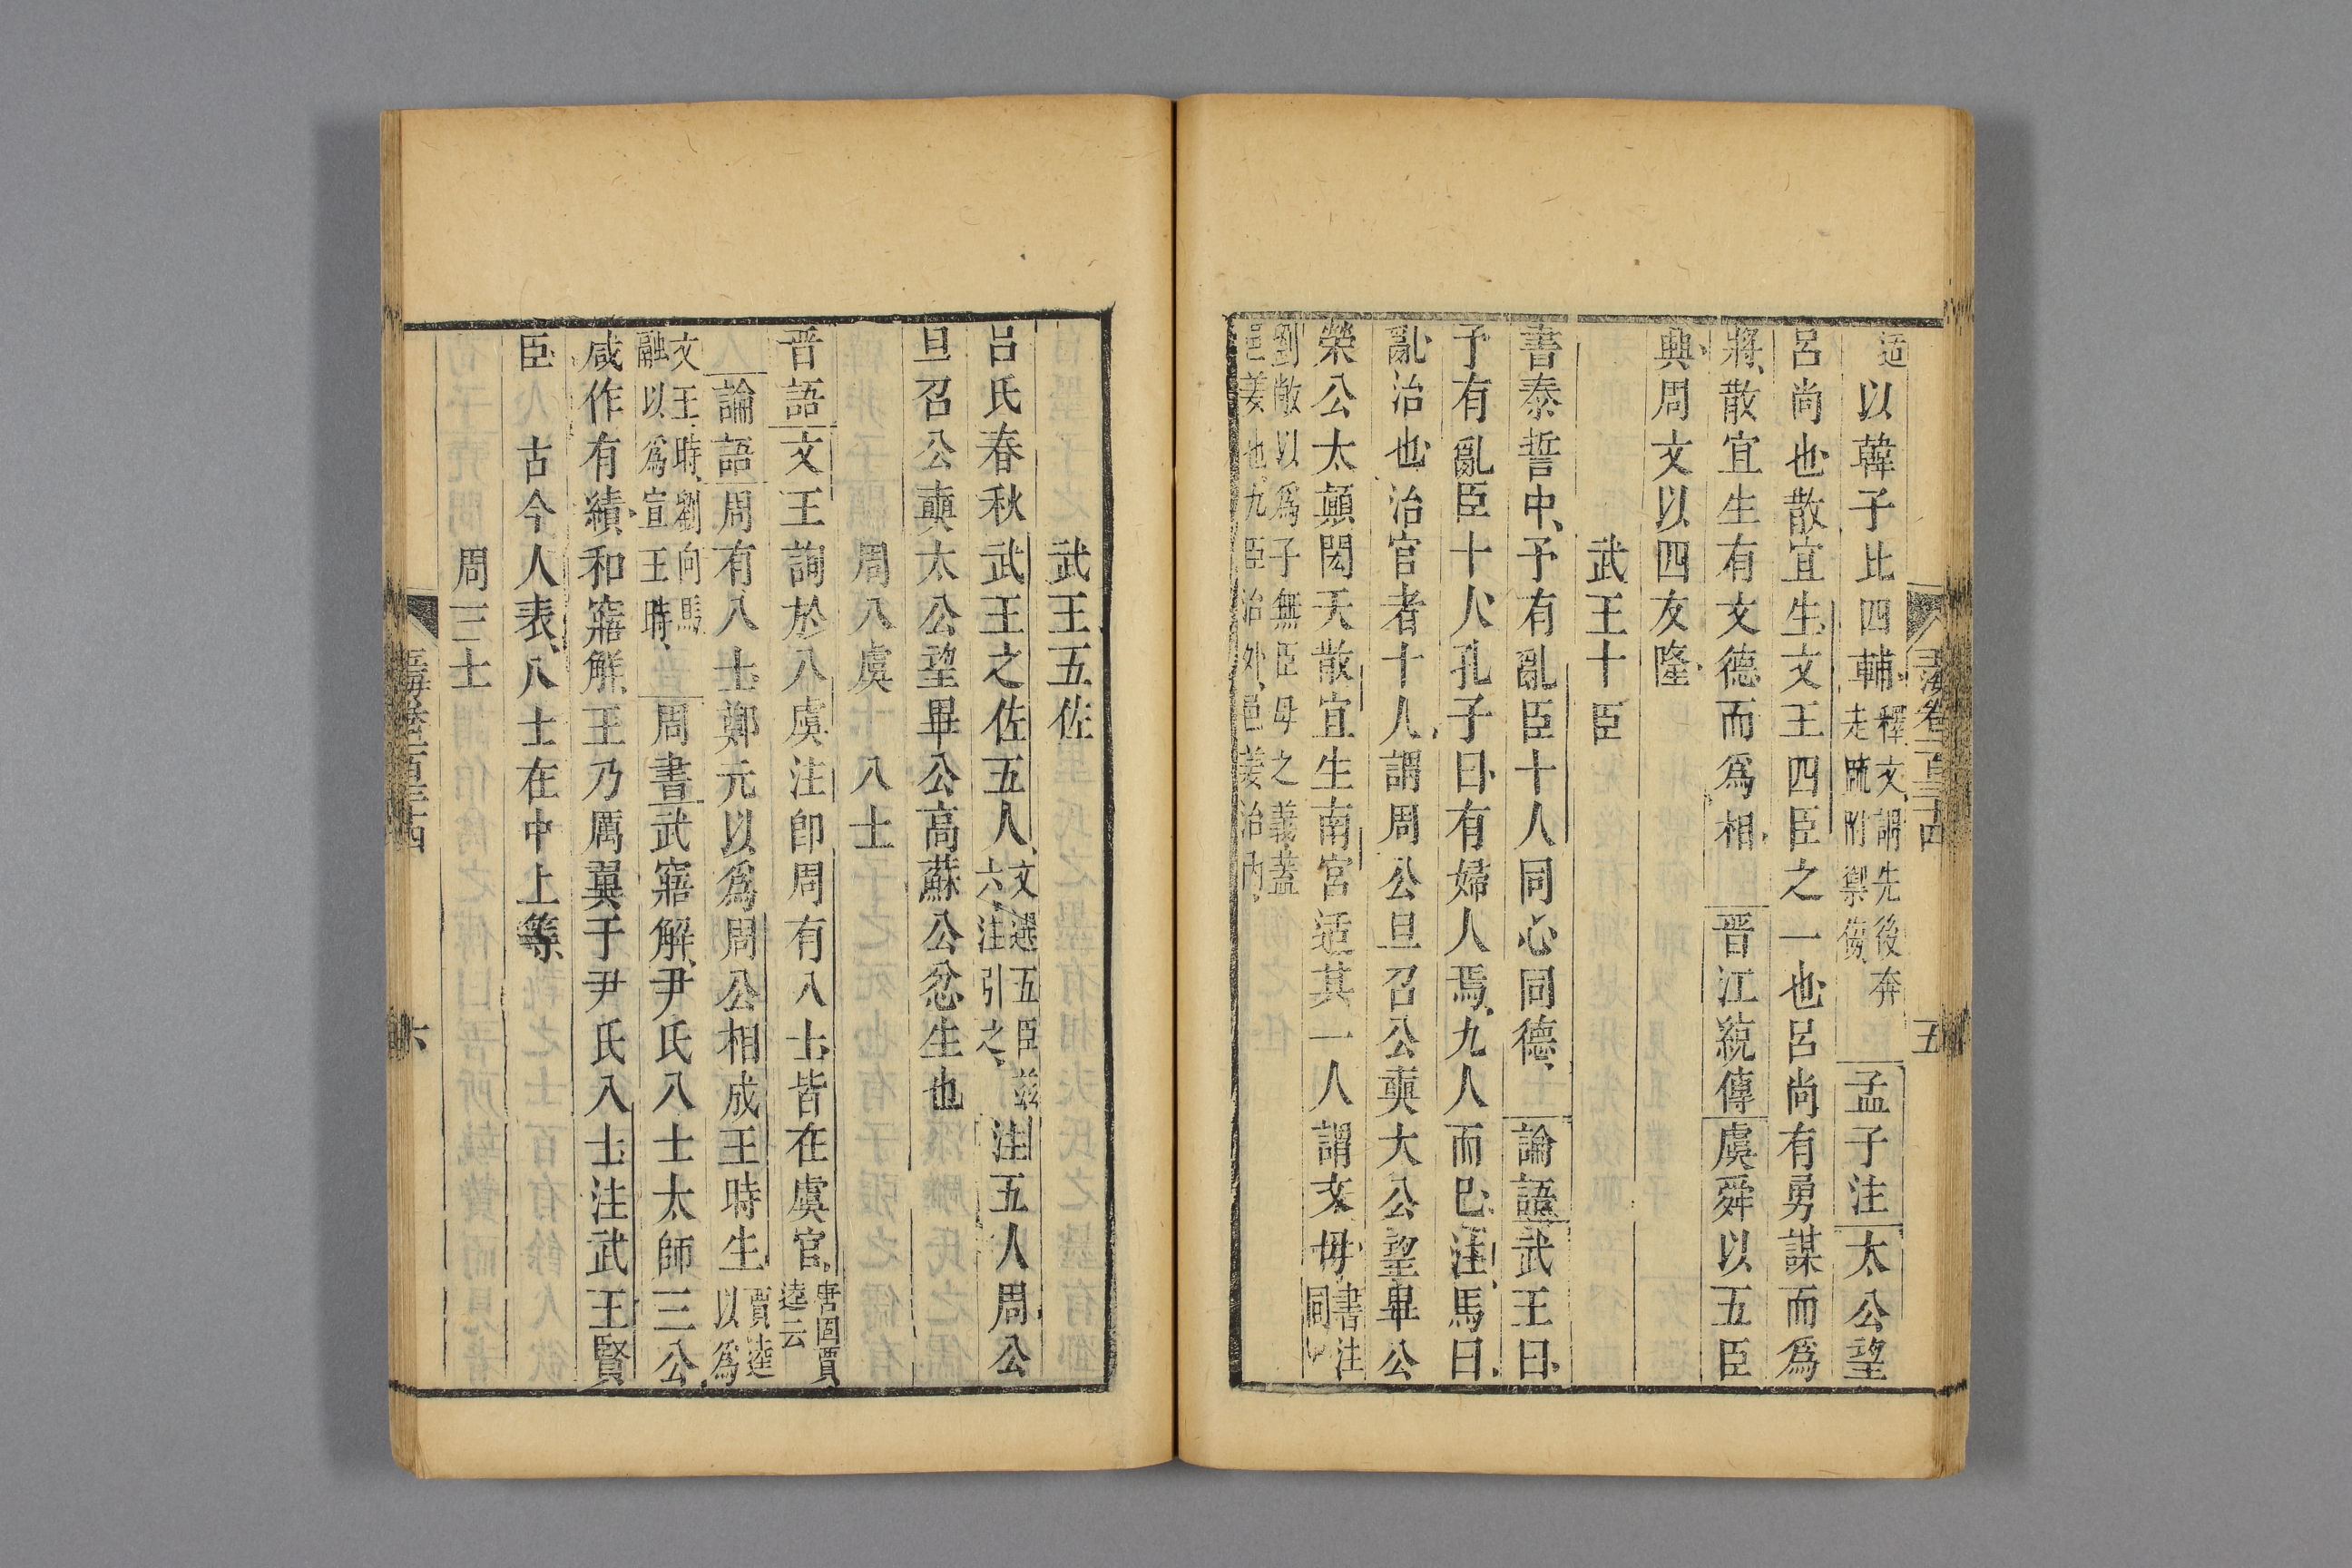 适以韓子比四輔釋文謂先後奔走疏附禦侮孟子注太公望
呂尚也散宜生文王四臣之一也呂尚有勇謀而爲
將散宜生有文德而爲相晉江統傳虞舜以五臣
興周文以四友隆
武王十臣
書泰誓中予有亂臣十人同心同德論語武王曰
予有亂臣十人孔子曰有婦人焉九人而已注馬曰
亂治也治官者十人謂周公旦召公奭大公望畢公
榮公太顛閎夭散宜生南宮适其一人謂文母書注同
劉敞以爲子無臣母之義蓋邑姜也九臣治外邑姜治內
武王五佐
呂氏春秋武王之佐五人文選五臣茲六注引之注五人周公
旦召公奭太公望畢公高蘇公忿生也
周八虞 八士
晉語文王詢於八虞注即周有八士皆在虞官唐固賈逵云
論語周有八士鄭元以爲周公相成王時生賈逵以爲
文王時劉向馬融以爲宣王時周書武寤解尹氏八士太師三公
咸作有績和寤解王乃厲翼于尹氏八士注武王賢
臣 古今人表八士在中上等
周三士
五
六